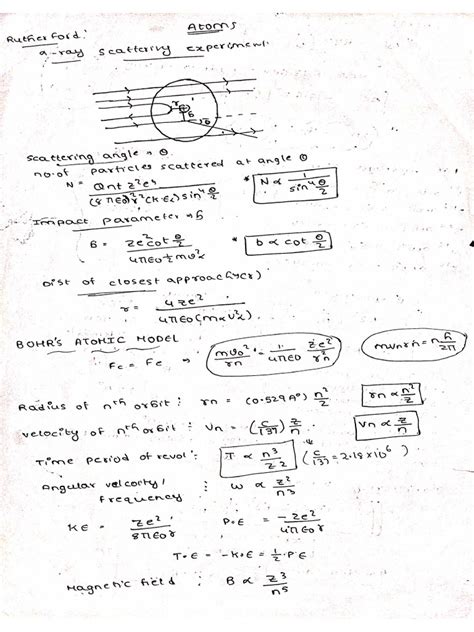 Atoms
Rutherford:
α-ray scattering experiment:
r
b
θ
Scattering angle → θ
no.of particles scattered at angle θ
N = Qnt z²e⁴ / (8πε0)² r²(K.E.)sin⁴ θ/2 * N ∝ 1 / sin⁴ θ/2
Impact parameter → b
b = ze² cot θ/2 / 4πε0 ½ mv²α * b ∝ cot θ/2
Dist of closest approach (r)
r = 4ze² / 4πε0(mαv²α)
BOHR'S ATOMIC MODEL
Fc = Fe → mv0² / rn = 1 / 4πε0 ze² / r²n mvnrn = n h / 2π
Radius of nth orbit : rn = (0.529A°) n² / z rn ∝ n² / z
velocity of nth orbit : Vn = (c / 137) z / n Vn ∝ z / n
Time period of revol : T ∝ n³ / z² (c / 137 = 2.18×10⁶)
Angular velocity/
frequency : ω ∝ z² / n³
KE = ze² / 8πε0r P.E = -ze² / 4πε0r
T.E = -K.E = ½ P.E
Magnetic field : B ∝ z³ / n⁵